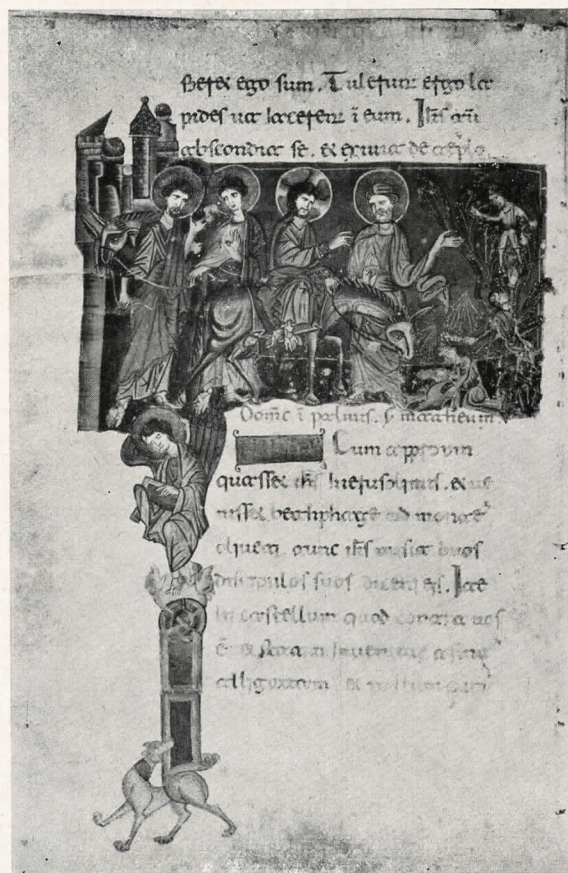 fieret ego sum. Tulerunt ergo la
pides ut iacerent ī eum. Ihs aū
abscondit se. et exiuit de tēplo
Domīc ī palmis. S matheum.
Cum appropin
quasset ihs hierosolimis. et ue
nisset bethphage ad monte
oliueti. tunc ihs misit duos
discipulos suos dicens eis. Ite
in castellum quod contra uos
ē et statim inuenietis asinā
alligatam et pullum cum